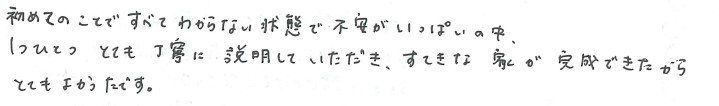 初めてのことですべてわからない状態で不安がいっぱいの中、
1つひとつ とても丁寧に説明していただき、すてきな家が完成できたから
とてもよかったです。